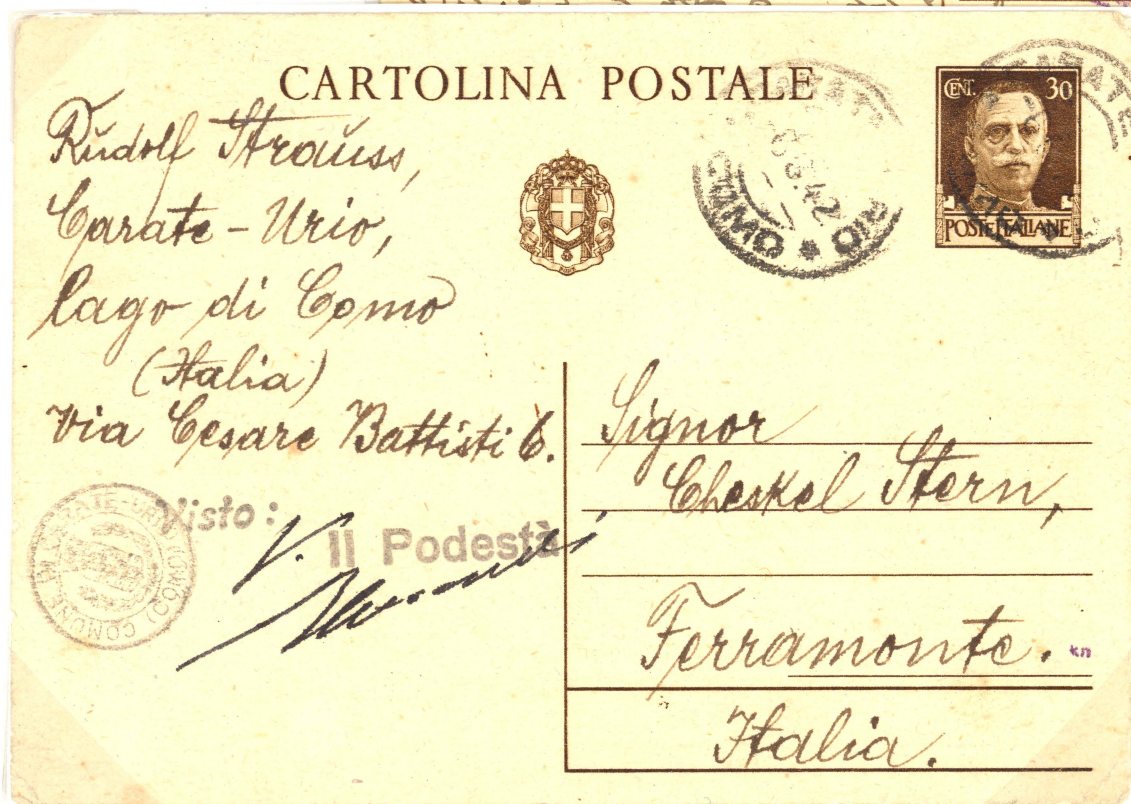 CARTOLINA POSTALE
CENT. 30
POSTE ITALIANE
Rudolf Strauss,
Carate-Urio,
lago di Como
(Italia)
Via Cesare Battisti 6.
Visto:
Il Podestà
COMUNE DI CARATE-URIO (COMO)
Signor
Cheskel Stern,
Ferramonte.
kn
Italia.